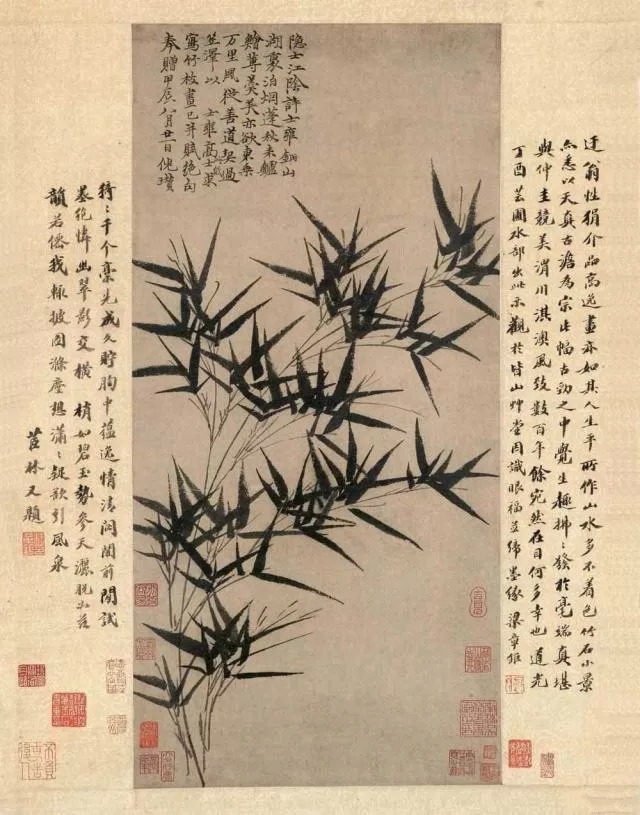 隐士江陰許士雍銅山
湖裏泊烟蓬秋来鱸
鱠蓴羹美亦欲東乗
万里風從善道契過
笠澤以 士雍高士索
寫竹枝畫已并賦絶句
奉贈甲辰八月廿一日倪瓚
迂翁性狷介品高逸畫亦如其人生平所作山水多不着色竹石小景
亦悉以天真古澹為宗此幅古勁之中覺生趣拂〻發於毫端真堪
與仲圭競美渭川淇澳風致數百年餘宛然在目何多幸也道光
丁酉芸圃水部出此示觀於皆山艸堂因識眼福並締墨緣 梁章鉅
猗〻千个稾先成久貯胸中蘊逸情清閟閣前閒試
墨絶憐幽翠影交橫 梢如碧玉勢參天灑脱
韻若僊我輒披図滌塵想瀟〻疑欲引風泉
茝林又題